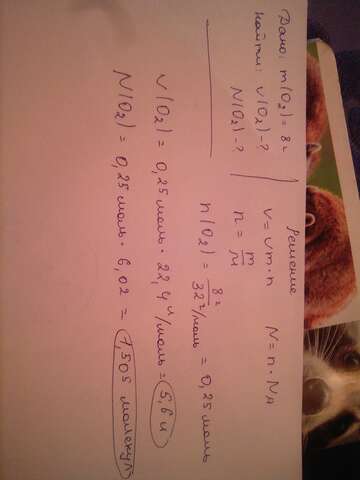 Дано: m(O₂) = 8г
Найти: V(O₂) - ?
N(O₂) - ?
Решение
V = Vm · n N = n · NA
n = m/M
n(O₂) = 8г / 32г/моль = 0,25 моль
V(O₂) = 0,25 моль · 22,4 л/моль = 5,6 л
N(O₂) = 0,25 моль · 6,02 = 1,505 молекул